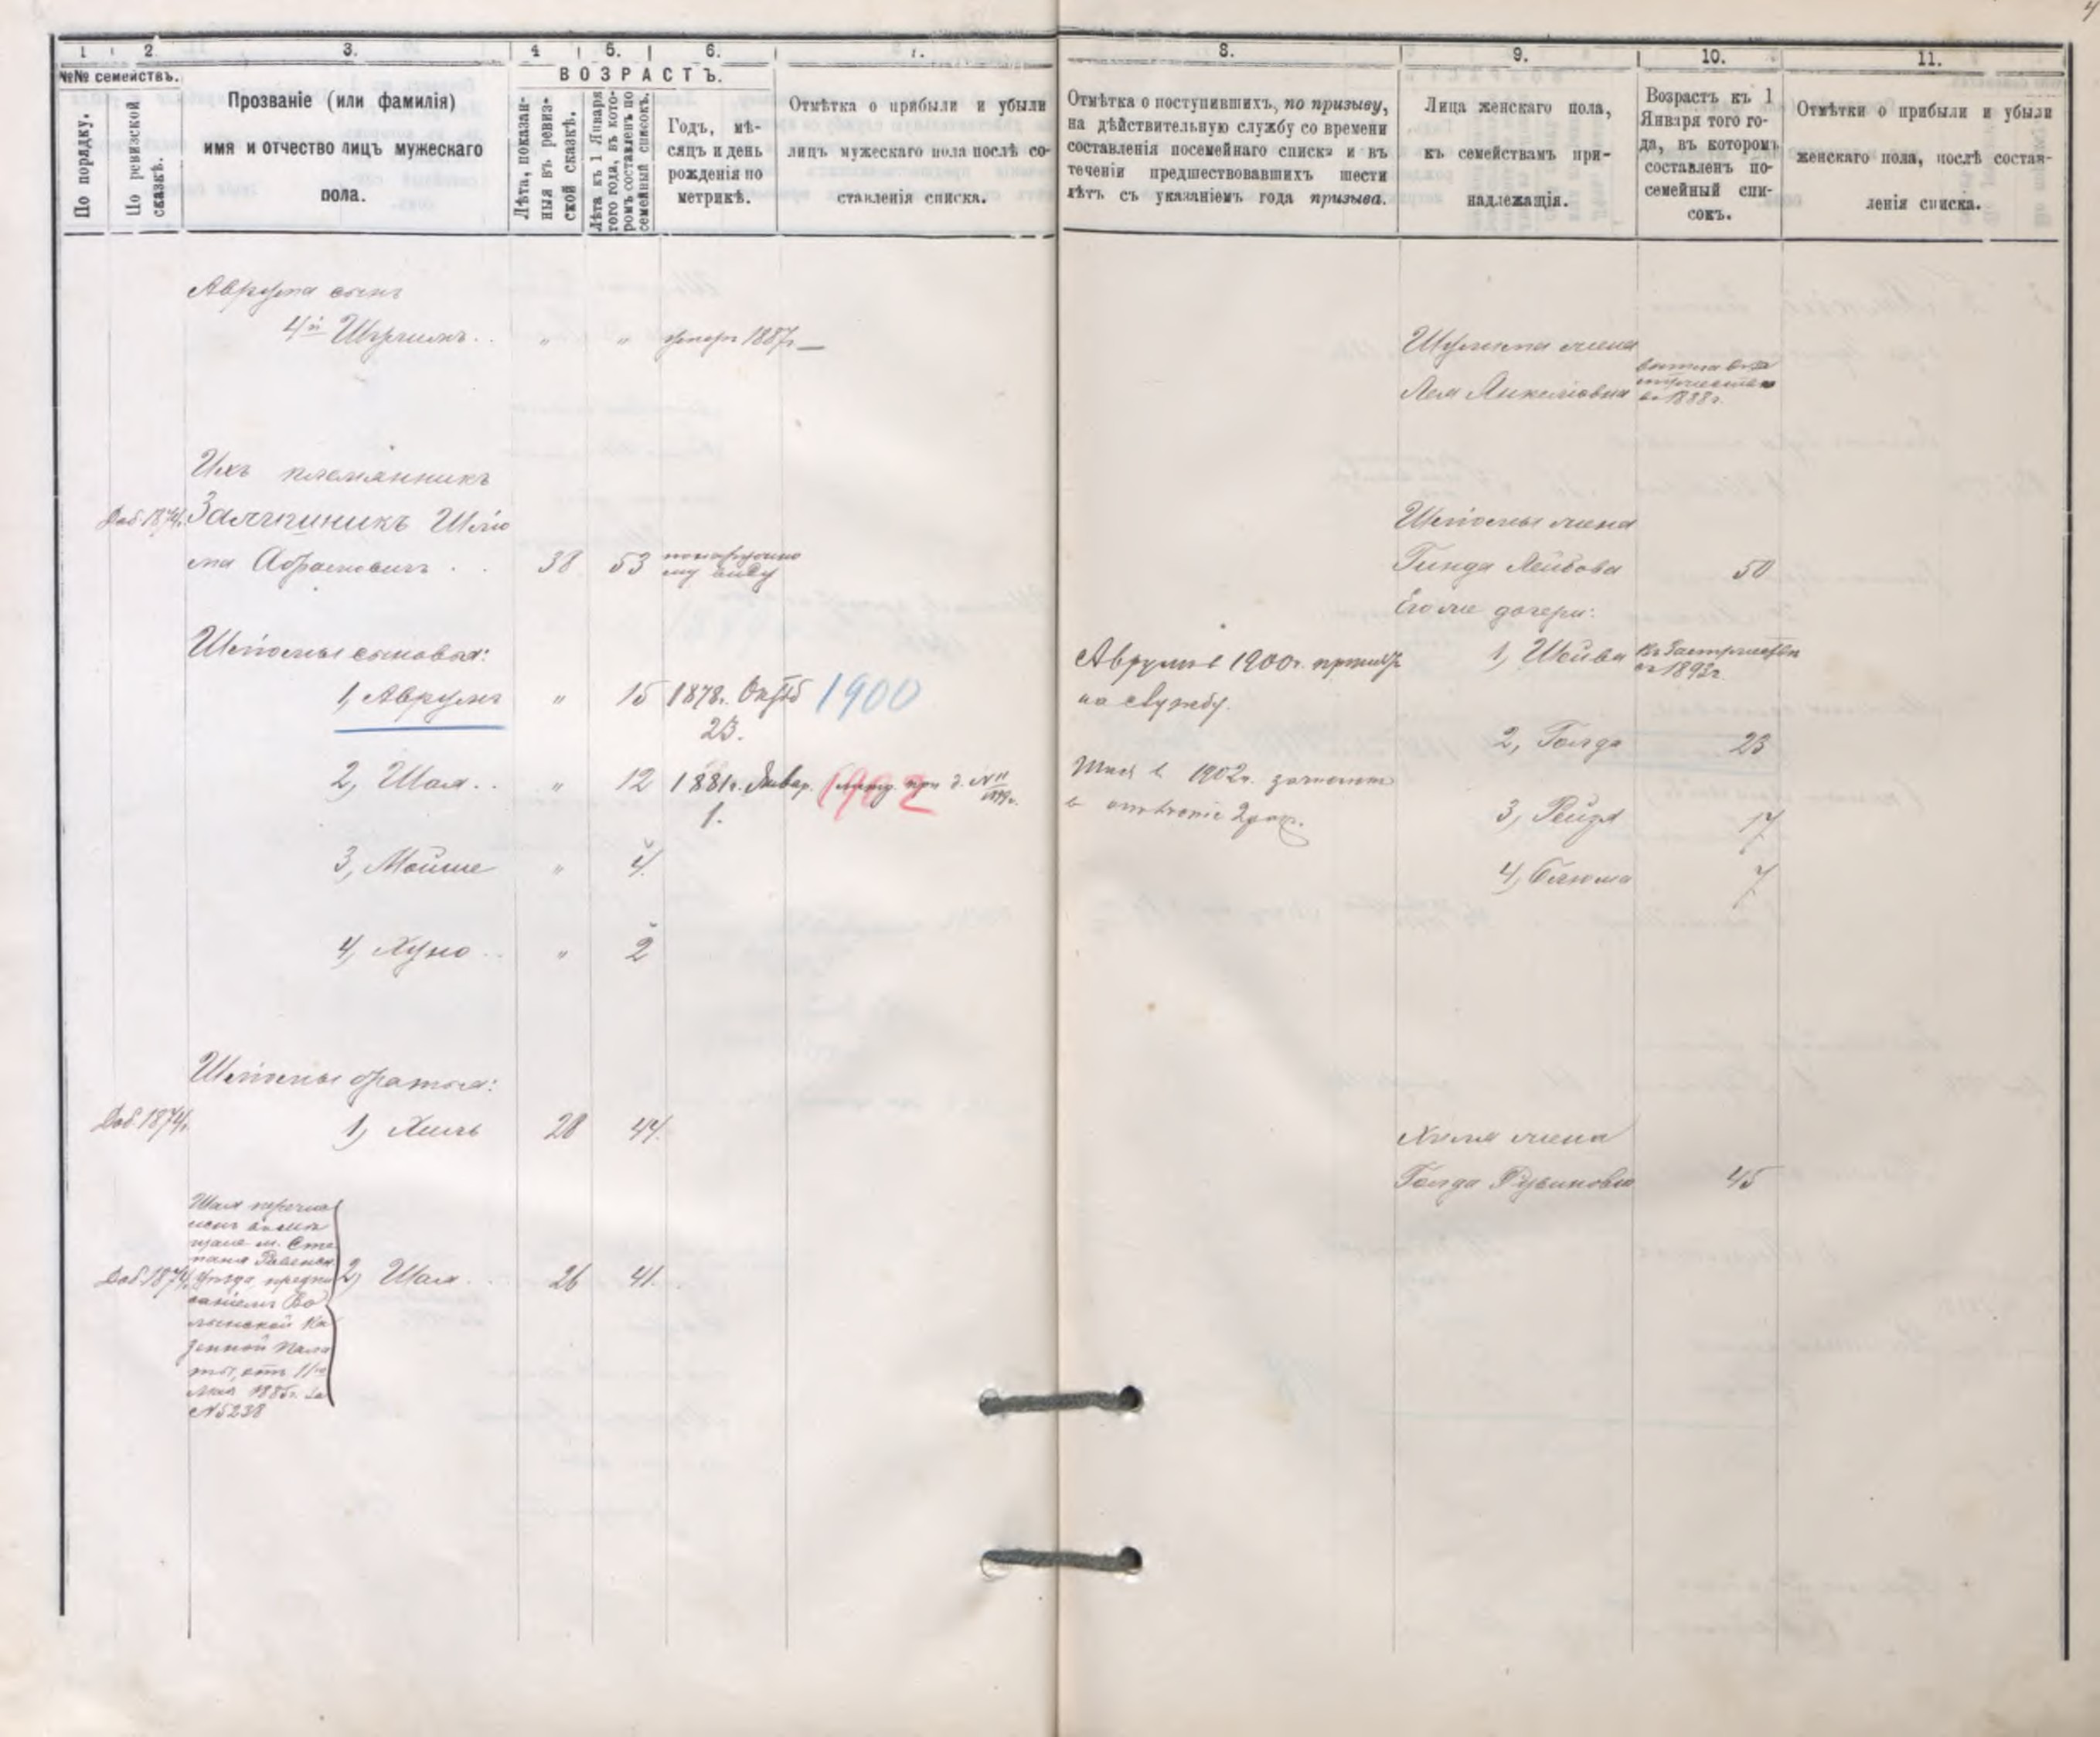 4
1
2
3.
4
5.
6.
7.
8.
9.
10.
11.
№№ семействъ.
По порядку.
По ревизской
сказкѣ.
Прозваніе (или фамилія)
имя и отчество лицъ мужескаго
пола.
ВОЗРАСТЪ.
Лѣта, показан-
ныя въ ревиз-
ской сказкѣ.
Лѣта къ 1 Января
того года, въ кото-
ромъ составленъ по
семейный списокъ.
Годъ, мѣ-
сяцъ и день
рожденія по
метрикѣ.
Отмѣтка о прибыли и убыли
лицъ мужескаго пола послѣ со-
ставленія списка.
Отмѣтка о поступившихъ, по призыву,
на дѣйствительную службу со времени
составленія посемейнаго списка и въ
теченіи предшествовавшихъ шести
лѣтъ съ указаніемъ года призыва.
Лица женскаго пола,
къ семействамъ при-
надлежащія.
Возрастъ къ 1
Января того го-
да, въ которомъ
составленъ по-
семейный спи-
сокъ.
Отмѣтки о прибыли и убыли
женскаго пола, послѣ состав-
ленія списка.
Аврума сынъ
4й " " 1887г
жена
Лея Янкелiовна
въ 1888г.
Ихъ племянникъ
Доб 1874г. Шлiо
ма Абрамовичъ . . 38 53
Шлiомы жена
Гинда Лейбова 50
Его же дочери:
Шлiомы сыновья:
1, Аврумъ " 15 1878г. Октяб 1900
23.
Аврумъ в 1900г. принятъ
на службу.
1, Шейва
съ 1893г.
2, Голда 23
2, Шая . . " 12 1881г. Январ. 1902
1.
Шая в 1902г. зачислен
3, Рейзя 17
3, Мойше " 4.
4, Блюма 7
4, Хуно . . " 2
Шлiомы братья:
Доб. 1874г. 1, Хиль 28 44.
Хиля жена
Голда Рувиновна 45
Шая перечис
ленъ въ мѣ
щане м. Сте
паня Ровенск
Уѣзда предпи
саніемъ Во
лынской Ка
зенной Пала
ты, отъ 11го
Мая 1885г. за
№5238
Доб 1874г. 2, Шая . . 26 41.